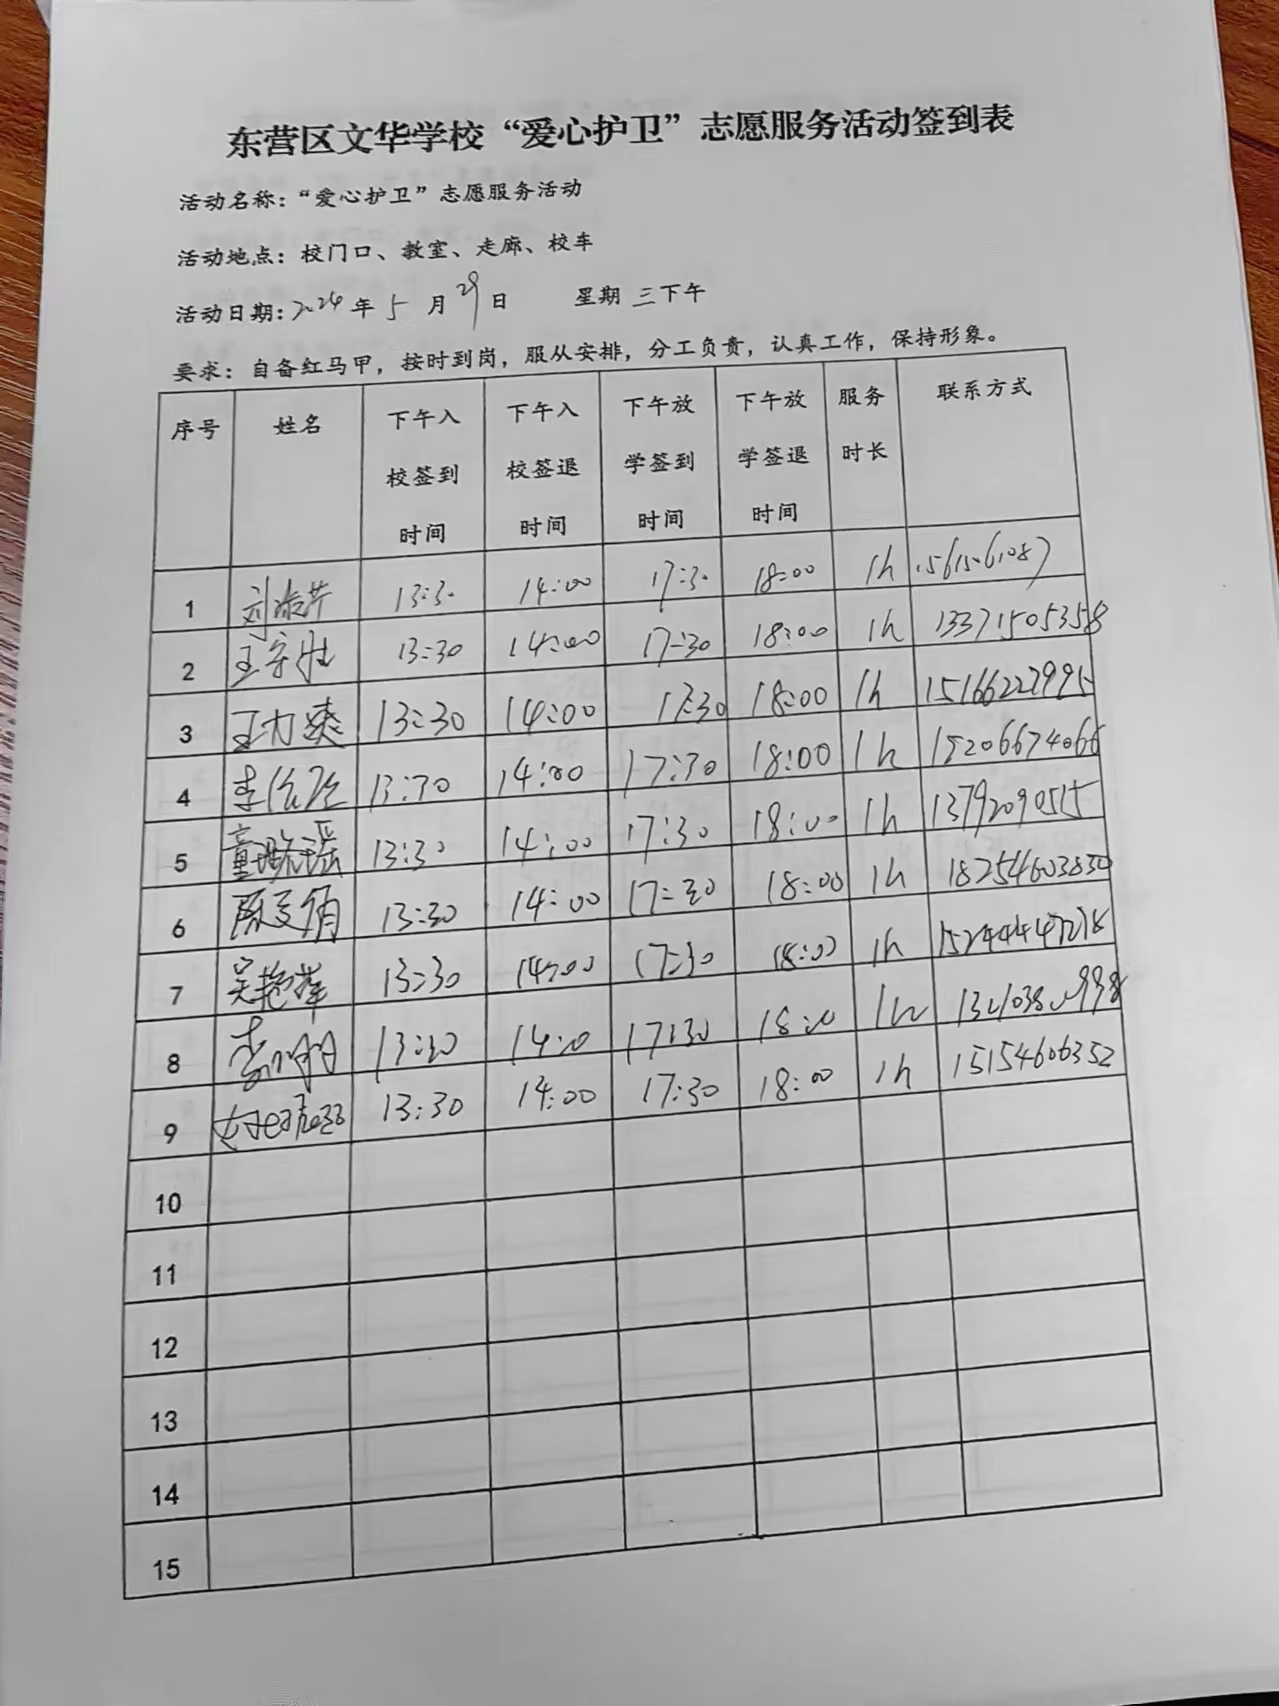 东营区文华学校“爱心护卫”志愿服务活动签到表
活动名称：“爱心护卫”志愿服务活动
活动地点：校门口、教室、走廊、校车
活动日期：2024年5月29日 星期三下午
要求：自备红马甲，按时到岗，服从安排，分工负责，认真工作，保持形象。
序号 姓名 下午入校签到时间 下午入校签退时间 下午放学签到时间 下午放学签退时间 服务时长 联系方式
1 刘淑芹 13:30 14:00 17:30 18:00 1h 15615061087
2 13:30 14:00 17:30 18:00 1h 13371505358
3 王力爽 13:30 14:00 17:30 18:00 1h 15166227995
4 13:30 14:00 17:30 18:00 1h 15206674066
5 13:30 14:00 17:30 18:00 1h 13792090515
6 13:30 14:00 17:30 18:00 1h 18254603830
7 吴艳萍 13:30 14:00 17:30 18:00 1h
8 13:30 14:00 17:30 18:00 1h
9 13:30 14:00 17:30 18:00 1h 15154606352
10
11
12
13
14
15